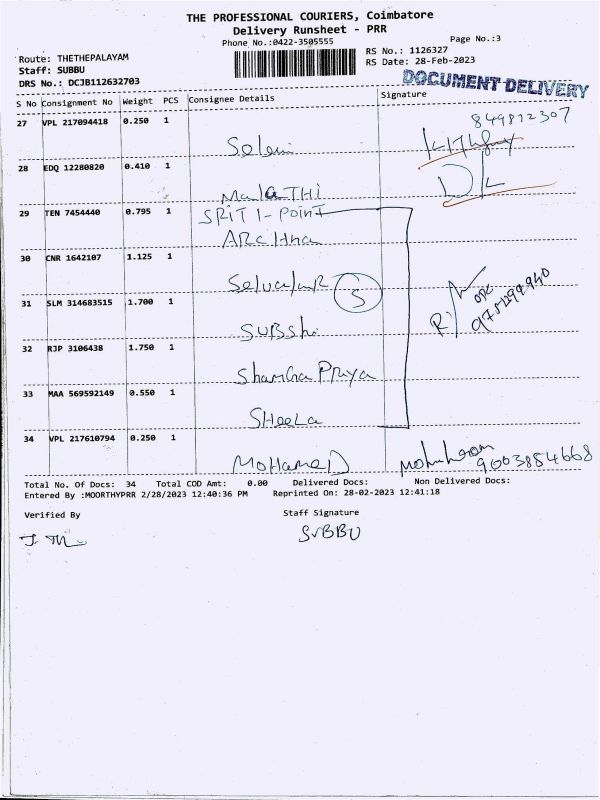 THE PROFESSIONAL COURIERS, Coimbatore
Delivery Runsheet - PRR
Phone No.:0422-3505555
Page No.:3
Route: THETHEPALAYAM
RS No.: 1126327
Staff: SUBBU
RS Date: 28-Feb-2023
DRS No.: DCJB112632703
DOCUMENT DELIVERY
S No Consignment No Weight PCS Consignee Details Signature
27 VPL 217094418 0.250 1
849812307
Selvi
28 EDQ 12280820 0.410 1
MalaTHi
29 TEN 7454440 0.795 1 SRIT I-Point
ARCHna
30 CNR 1642107 1.125 1
5
31 SLM 314683515 1.700 1
SUBShi
32 RJP 3106438 1.750 1
Priya
33 MAA 569592149 0.550 1
SHeeLa
34 VPL 217610794 0.250 1
MOHameD
9003854668
Total No. Of Docs: 34 Total COD Amt: 0.00 Delivered Docs: Non Delivered Docs:
Entered By :MOORTHYPRR 2/28/2023 12:40:36 PM Reprinted On: 28-02-2023 12:41:18
Verified By Staff Signature
SUBBU